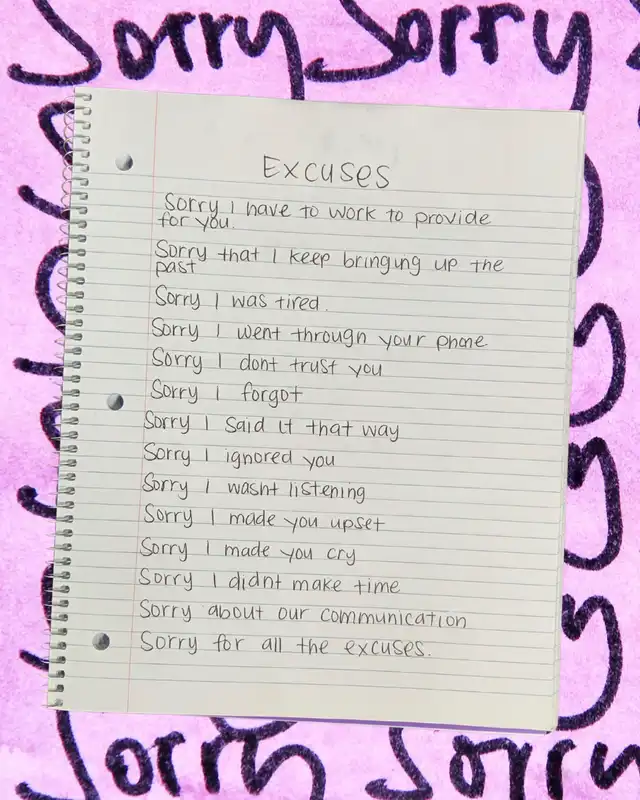 Sorry Sorry
Excuses
Sorry I have to work to provide
for you.
Sorry that I keep bringing up the
past
Sorry I was tired.
Sorry I went through your phone
Sorry I dont trust you
Sorry I forgot
Sorry I said it that way
Sorry I ignored you
Sorry I wasnt listening
Sorry I made you upset
Sorry I made you cry
Sorry I didnt make time
Sorry about our communication
Sorry for all the excuses.
Sorry Sorry